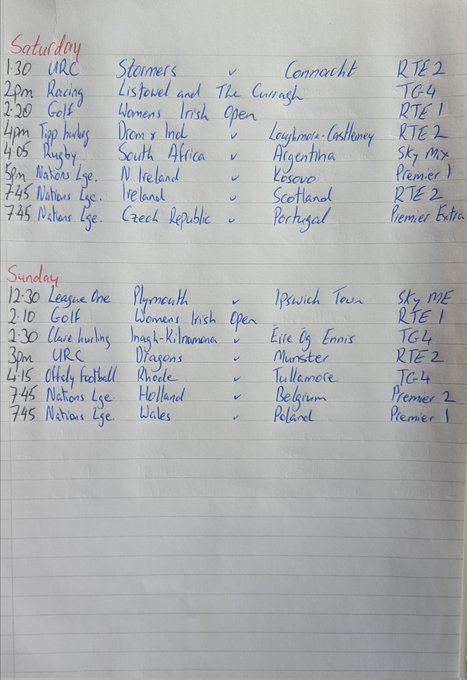 Saturday
1:30 URC Stormers v Connacht RTE 2
2pm Racing Listowel and The Curragh TG4
2:20 Golf Womens Irish Open RTE 1
4pm Tipp hurling Drom & Inch v Loughmore-Castleiney RTE 2
4:05 Rugby South Africa v Argentina Sky Mix
5pm Nations Lge. N Ireland v Kosovo Premier 1
7:45 Nations Lge. Ireland v Scotland RTE 2
7:45 Nations Lge. Czech Republic v Portugal Premier Extra
Sunday
12:30 League One Plymouth v Ipswich Town Sky ME
2:10 Golf Womens Irish Open RTE 1
2:30 Clare hurling Inagh-Kilnamona v Eire Og Ennis TG4
3pm URC Dragons v Munster RTE 2
4:15 Offaly football Rhode v Tullamore TG4
7:45 Nations Lge. Holland v Belgium Premier 2
7:45 Nations Lge. Wales v Poland Premier 1